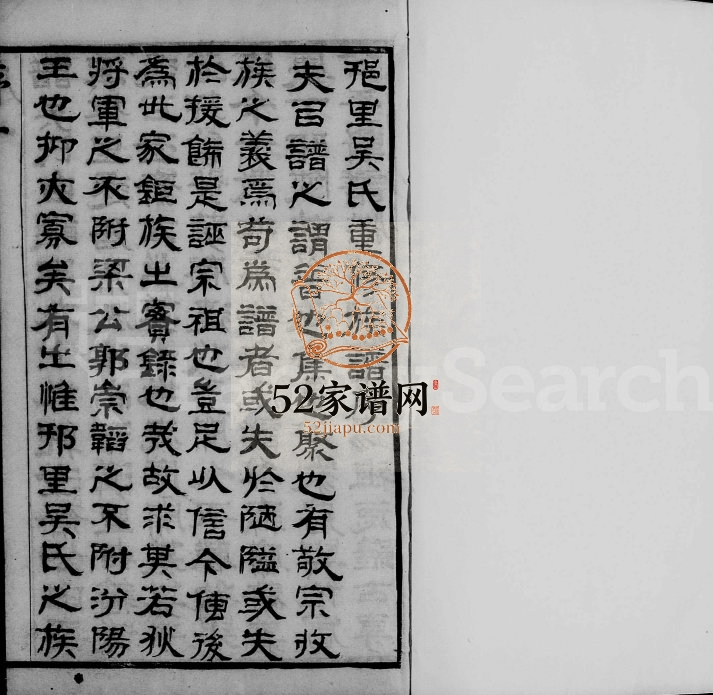 琶里吴氏重修族譜
夫吕譜之謂普也集也聚也有敬宗收
族之義焉苟為譜者或失於陋隘或失
於援飾是誣宗祖也豈足以信今傳後
為此家鉅族之實錄也哉故求其若狄
將軍之不附梁公郭崇韜之不附汾陽
王也抑亦寡矣有之惟琶里吴氏之族
52家谱网
52jiapu.com
Search